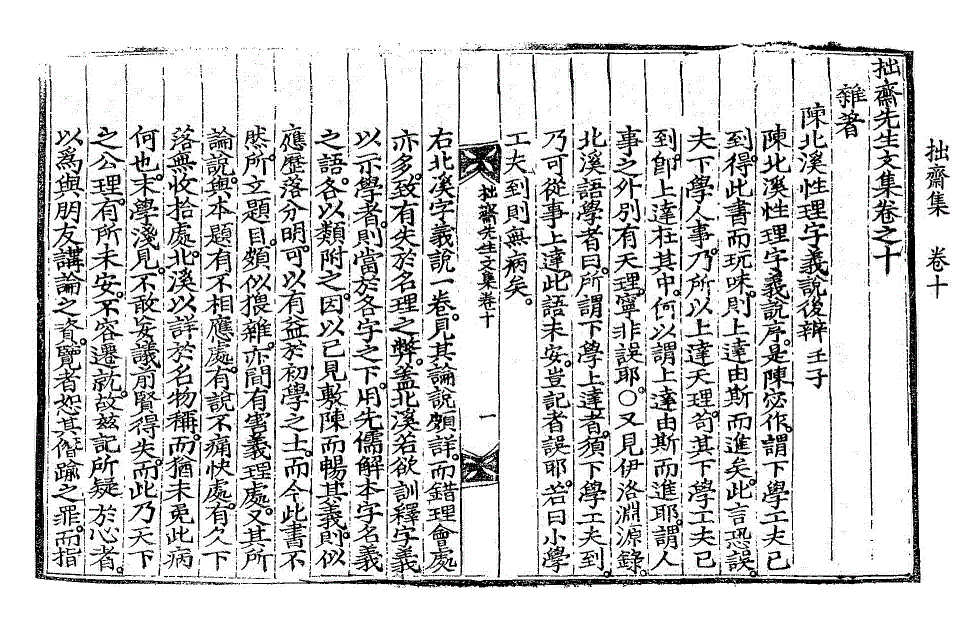 拙齋集 卷十
拙齋先生文集卷之十
雜著
陳北溪性理字義說後辨 壬子
陳北溪性理字義說序。是陳宓作。謂下學工夫已
到得此書而玩味。則上達由斯而進矣。此言恐誤。
夫下學人事。乃所以上達天理。苟其下學工夫已
到。卽上達在其中。何以謂上達由斯而進耶。謂人
事之外。別有天理。寧非誤耶。○又見伊洛淵源錄。
北溪語學者曰。所謂下學上達者。須下學工夫到。
乃可從事上達。此語未安。豈記者誤耶。若曰小學
工夫到則無病矣。
拙齋先生文集卷十 一
右北溪字義說一卷。見其論說頗詳。而錯理會處
亦多。致有失於名理之弊。盖北溪若欲訓釋字義
以示學者。則當於各字之下。用先儒解本字名義
之語。各以類附之。因以己見敷陳而暢其義。則似
應歷落分明。可以有益於初學之士。而今此書不
然。所立題目。頗似猥雜。亦間有害義理處。又其所
論說。與本題有不相應處。有說不痛快處。有欠下
落無收拾處。北溪以詳於名物稱。而猶未免此病
何也。末學淺見。不敢妄議前賢得失。而此乃天下
之公理。有所未安。不容遷就。故玆記所疑於心者。
以爲與朋友講論之資。覽者恕其僭踰之罪。而指